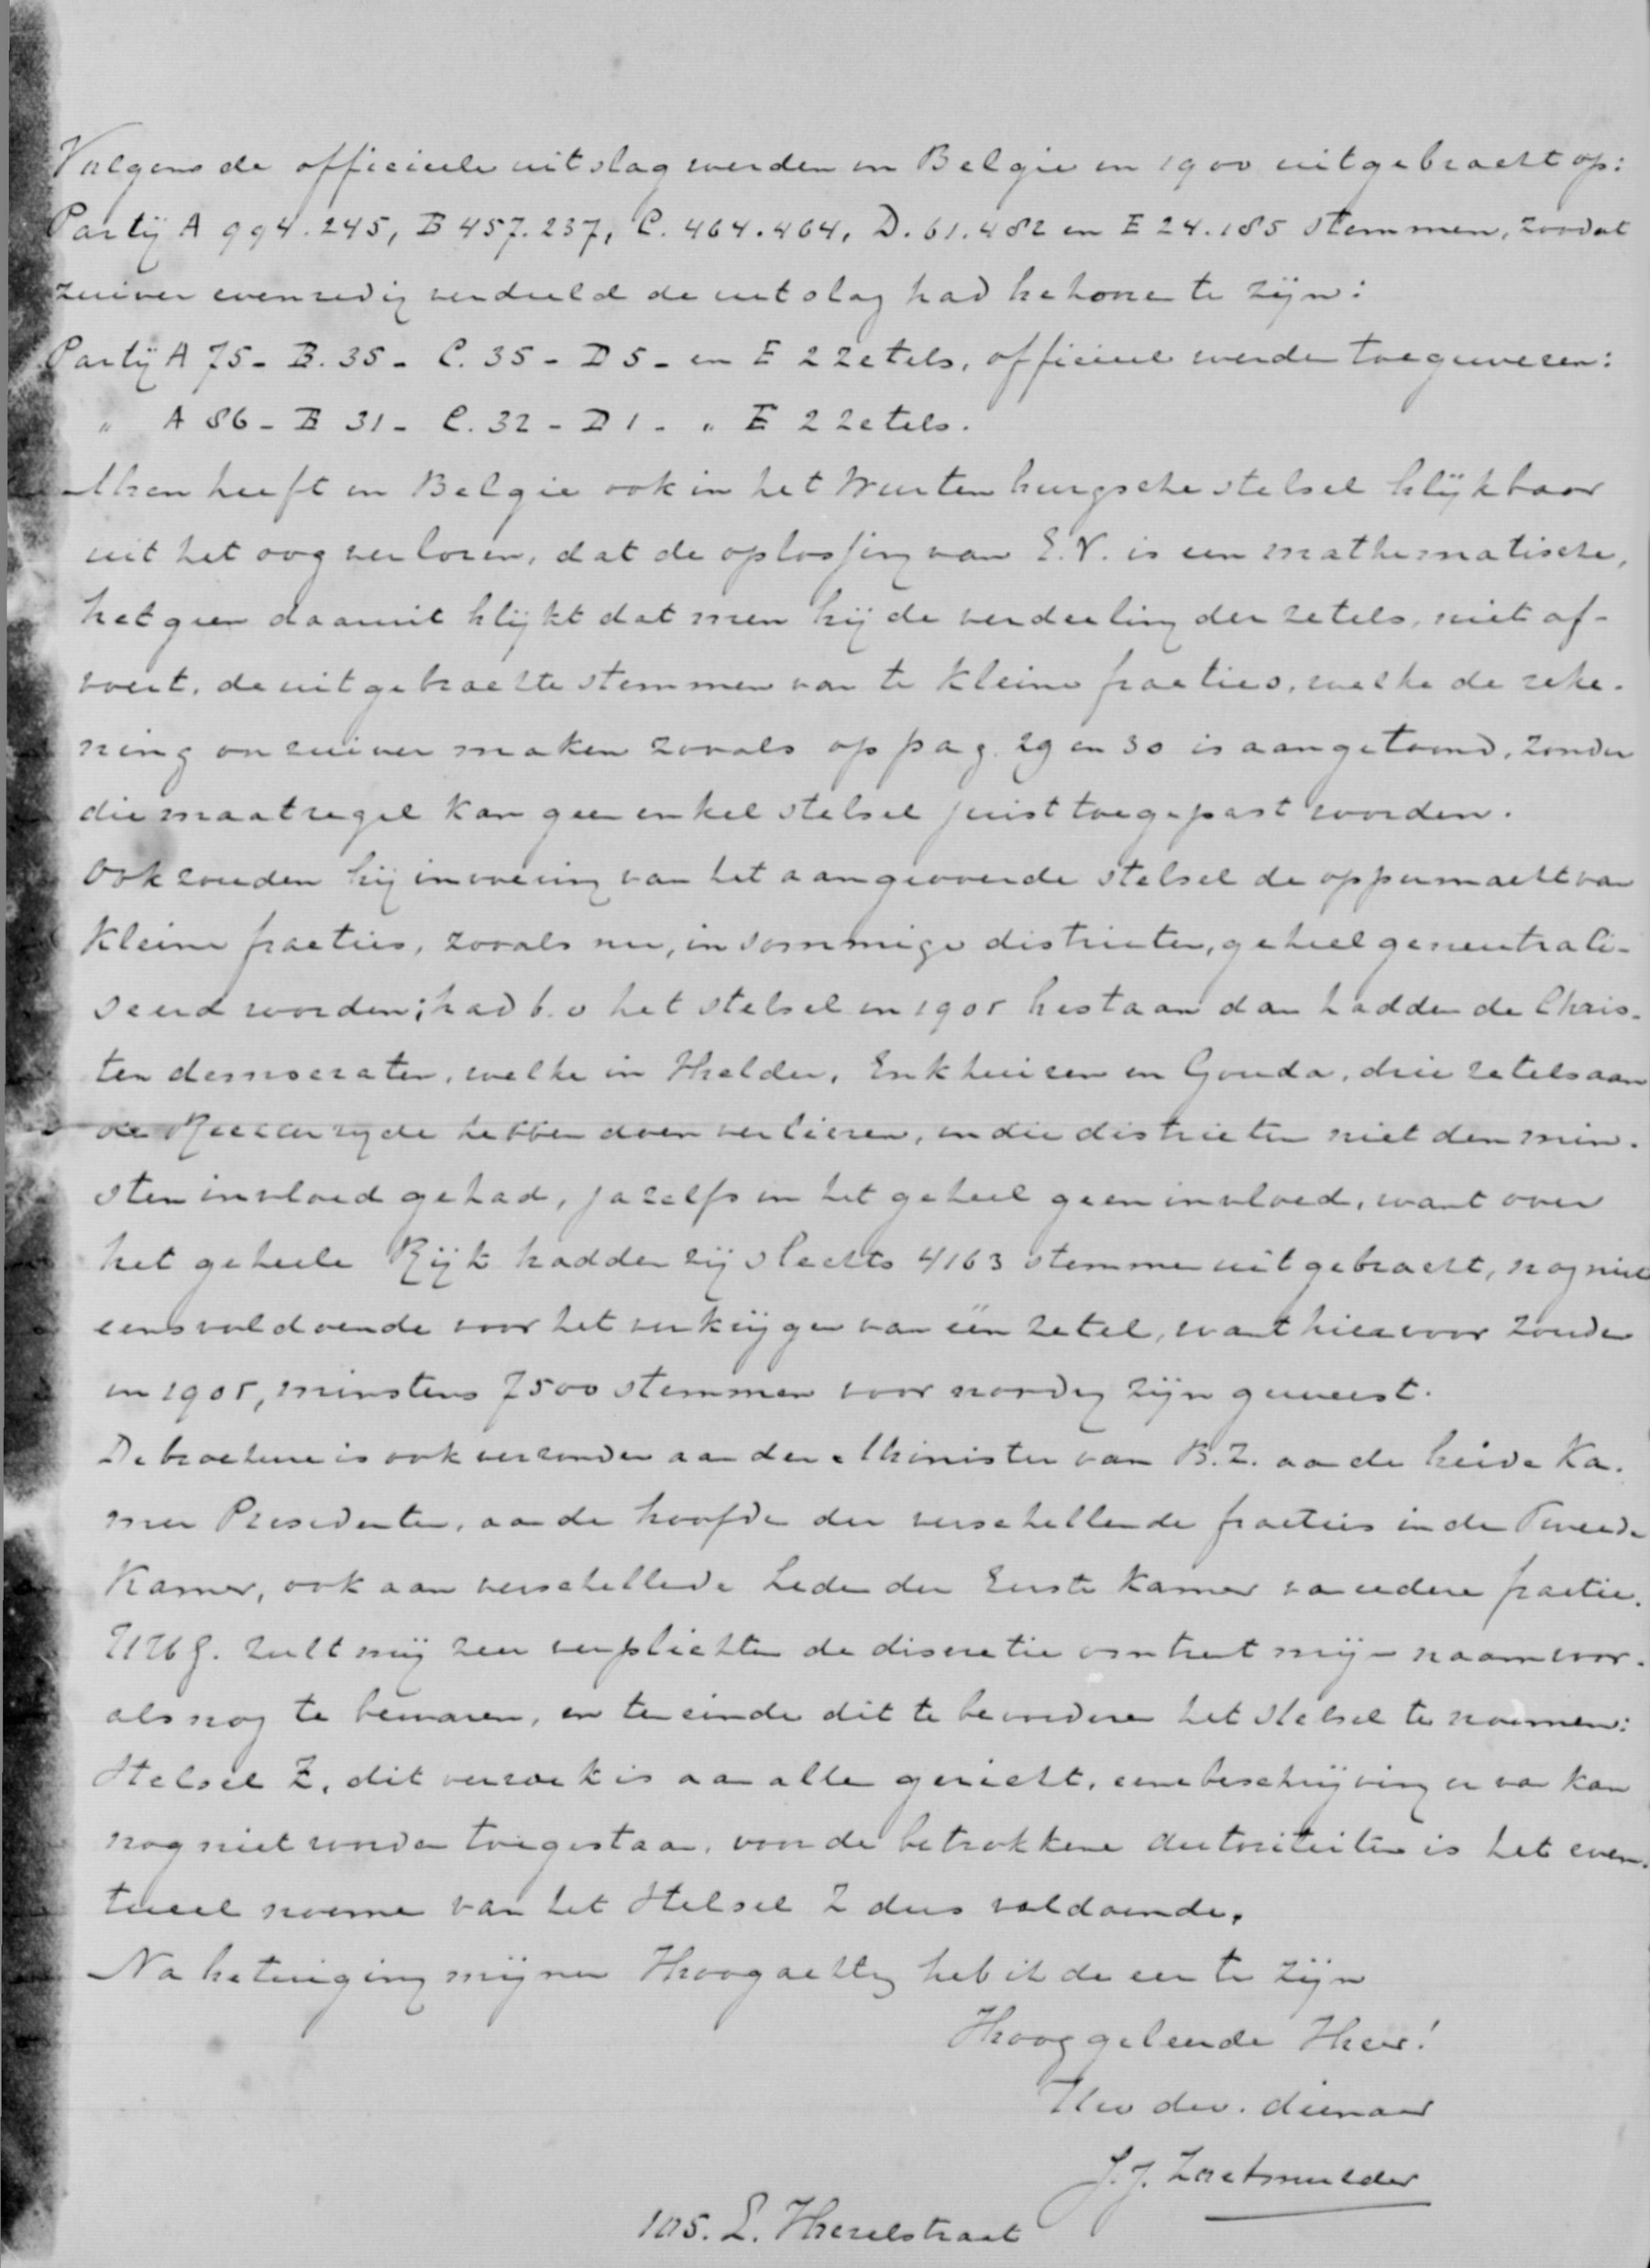 Volgens de officieele uitslag werden in Belgie in 1900 uitgebracht op:
Partij A 994.245, B 457.237, C. 464.464, D. 61.482 en E 24.185 stemmen, zoodat
zuiver evenredig verdeeld de uitslag had behooren te zijn:
Partij A 75 - B. 35 - C. 35 - D 5 - en E 2 Zetels, officieel werden toegewezen:
" A 86 - B 31 - C. 32 - D 1 - " E 2 Zetels.
Men heeft in Belgie ook in het Wurtenburgsche stelsel blijkbaar
uit het oog verloren, dat de oplossing van E.V. is een mathematische,
hetgeen daaruit blijkt dat men bij de verdeeling der zetels, niet af-
voert, de uitgebrachte stemmen van te kleine fracties, welke de reke-
ning onzuiver maken zooals op pag. 29 en 30 is aangetoond, zonder
die maatregel kan geen enkel stelsel juist toegepast worden.
Ook zouden bij invoering van het aangevoerde stelsel de oppermacht van
kleine fracties, zooals nu, in sommige districten, geheel geneutrali-
seerd worden; had b.v het stelsel in 1905 bestaan dan hadden de Chris-
ten democraten, welke in Helder, Enkhuizen en Gouda, drie zetels aan
de Rechterzijde hebben doen verliezen, in die districten niet den min-
sten invloed gehad, ja zelfs in het geheel geen invloed, want over
het geheele Rijk hadden zij slechts 4163 stemmen uitgebracht, nog niet
eens voldoende voor het verkrijgen van één zetel, want hiervoor zouden
in 1905, minstens 7500 stemmen voor noodig zijn geweest.
De brochure is ook verzonden aan den Minister van B.Z. aan de beide Ka-
mer Presidenten, aan de hoofden der verschillende fracties in de Tweede
Kamer, ook aan verschillende Leden der Eerste Kamer van iedere fractie.
UHG. zult mij zeer verplichten de discretie omtrent mijn naam voor-
als nog te bewaren, en ten einde dit te bevorderen het stelsel te noemen:
Stelsel Z, dit verzoek is aan allen gericht, eene beschrijving er van kan
nog niet worden toegestaan, voor de betrokkene Autoriteiten is het even-
tueel noemen van het Stelsel Z dus voldoende.
Na betuiging mijner Hoogachting heb ik de eer te zijn
Hooggeleerde Heer!
Uw dw. dienaar
J.J. Zoetmulder
105. L. Hezelstraat